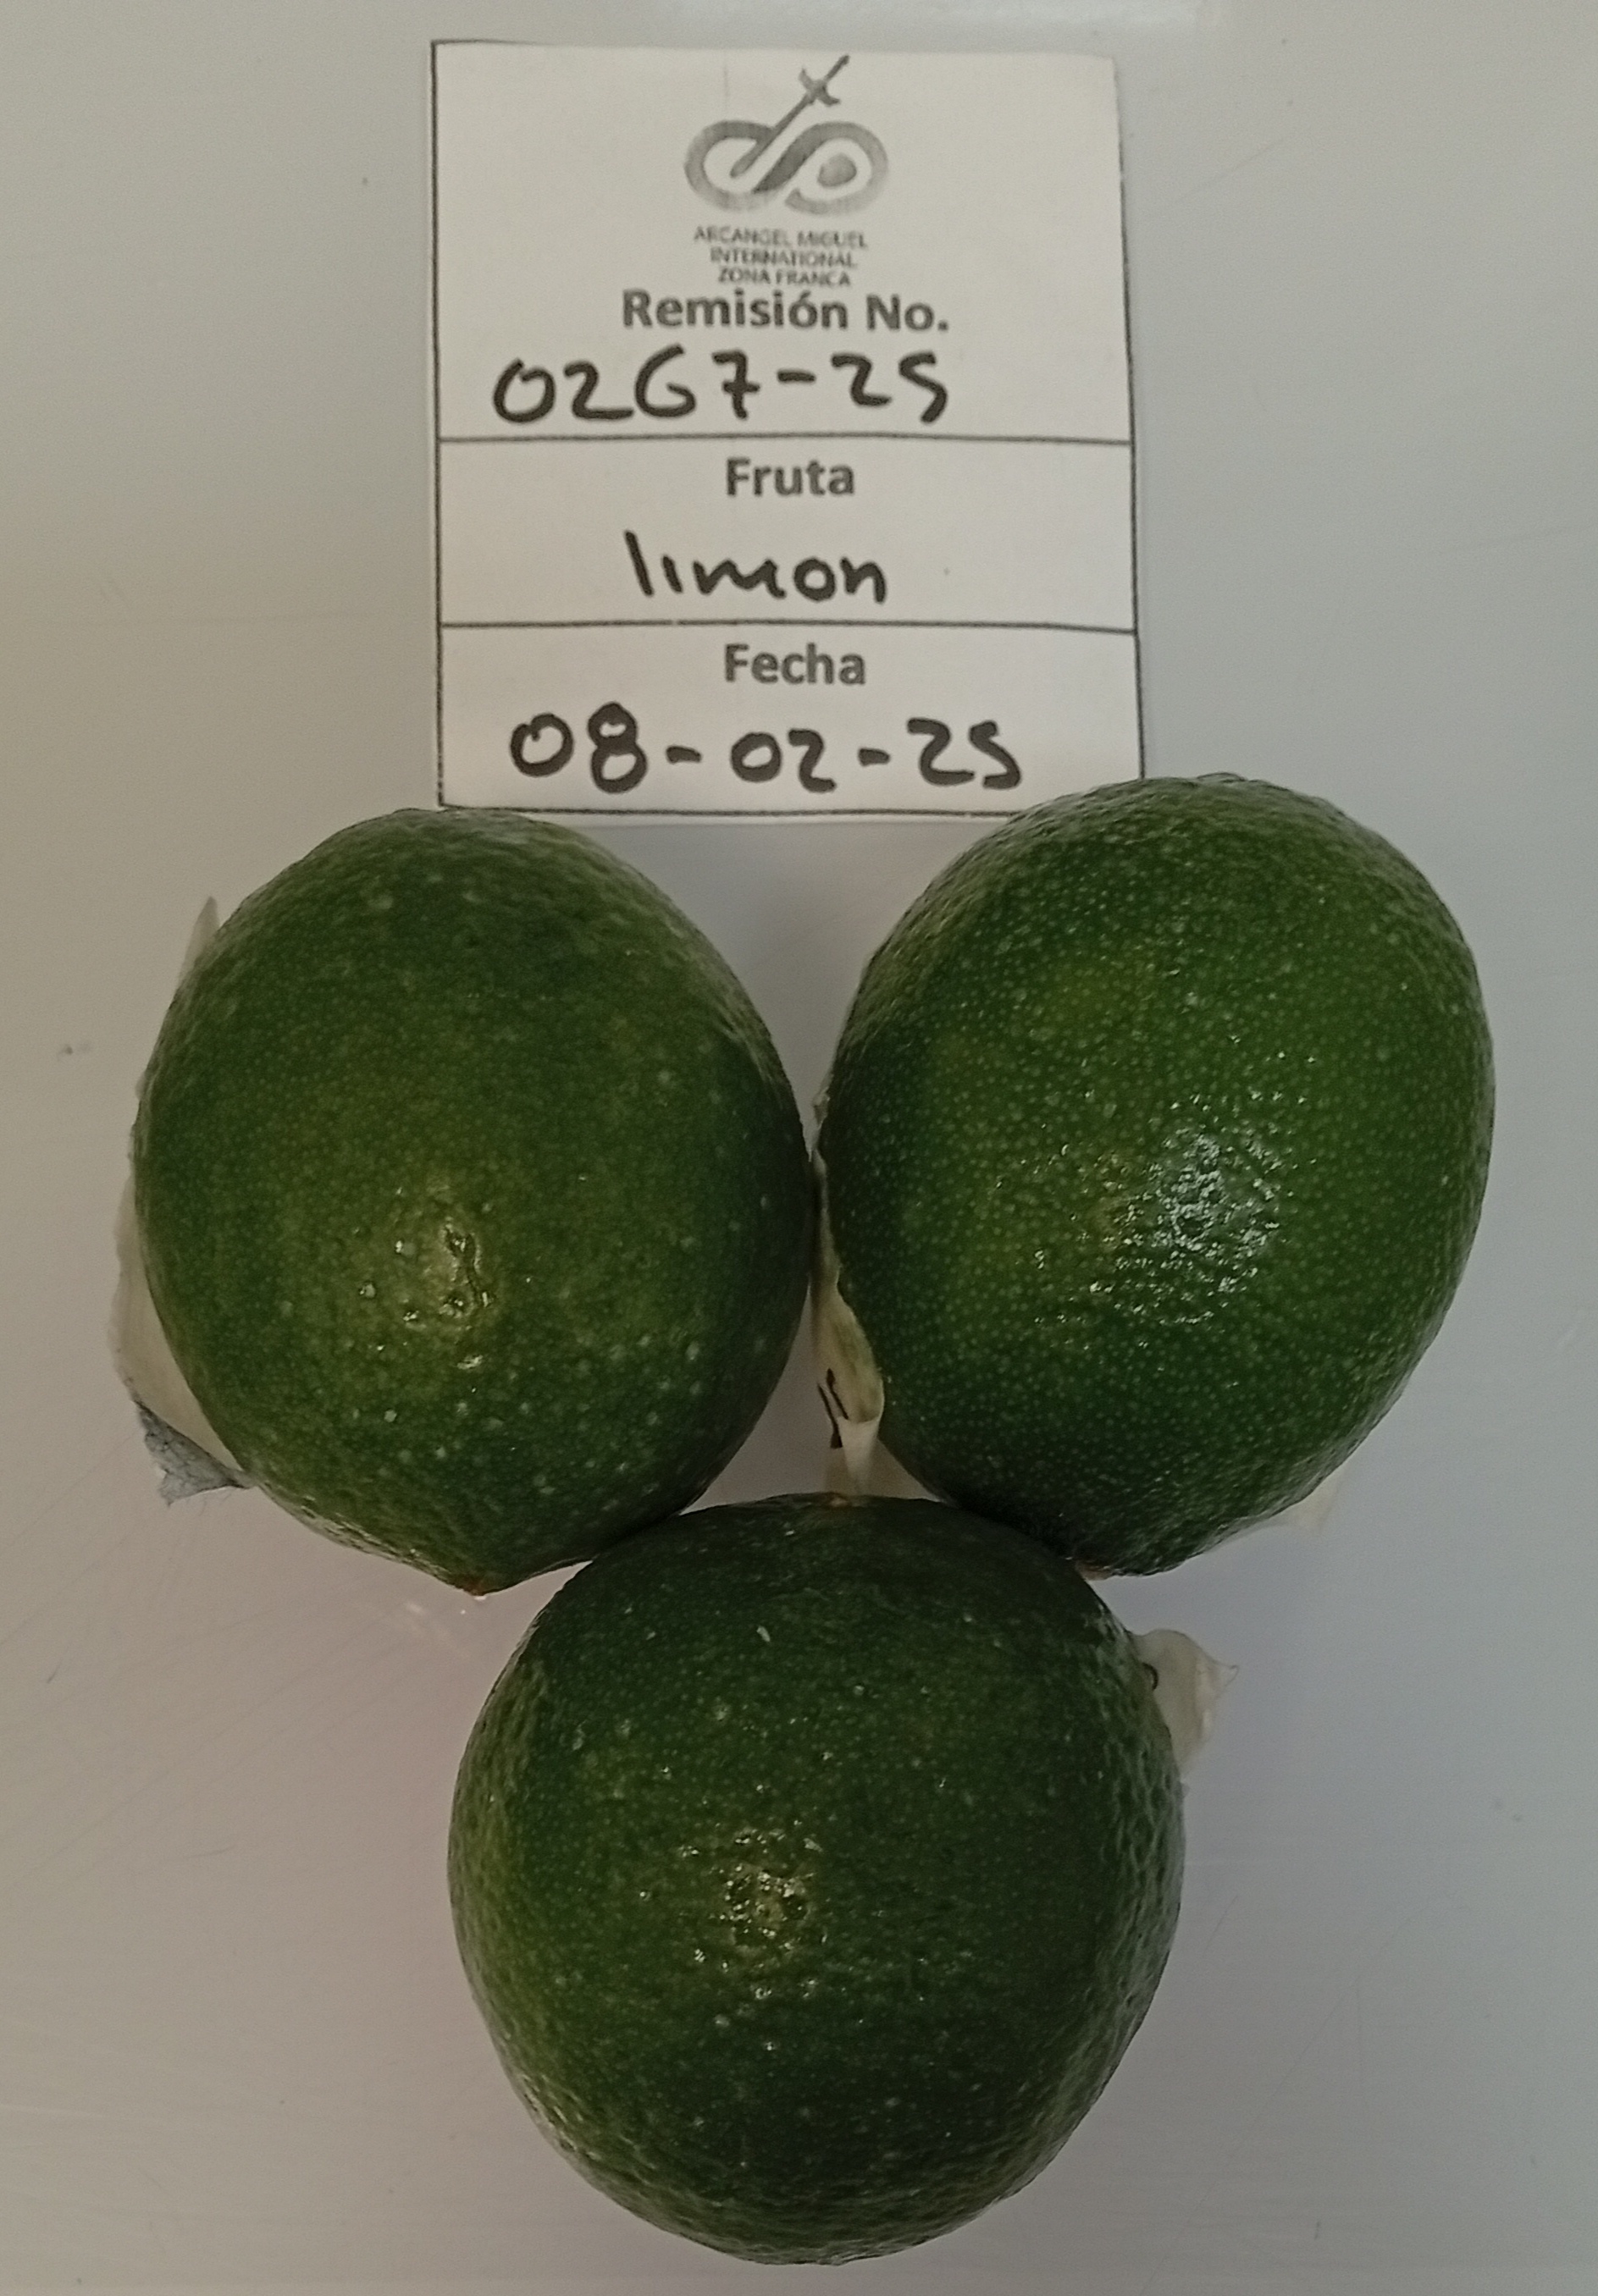 ARCANGEL MIGUEL
INTERNATIONAL
ZONA FRANCA
Remisión No.
0267-25
Fruta
limon
Fecha
08-02-25